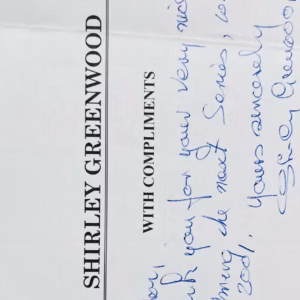 SHIRLEY GREENWOOD
WITH COMPLIMENTS
you for your very nic
the next Series, w
2001.
Yours sincerely
Shirley Greenwood